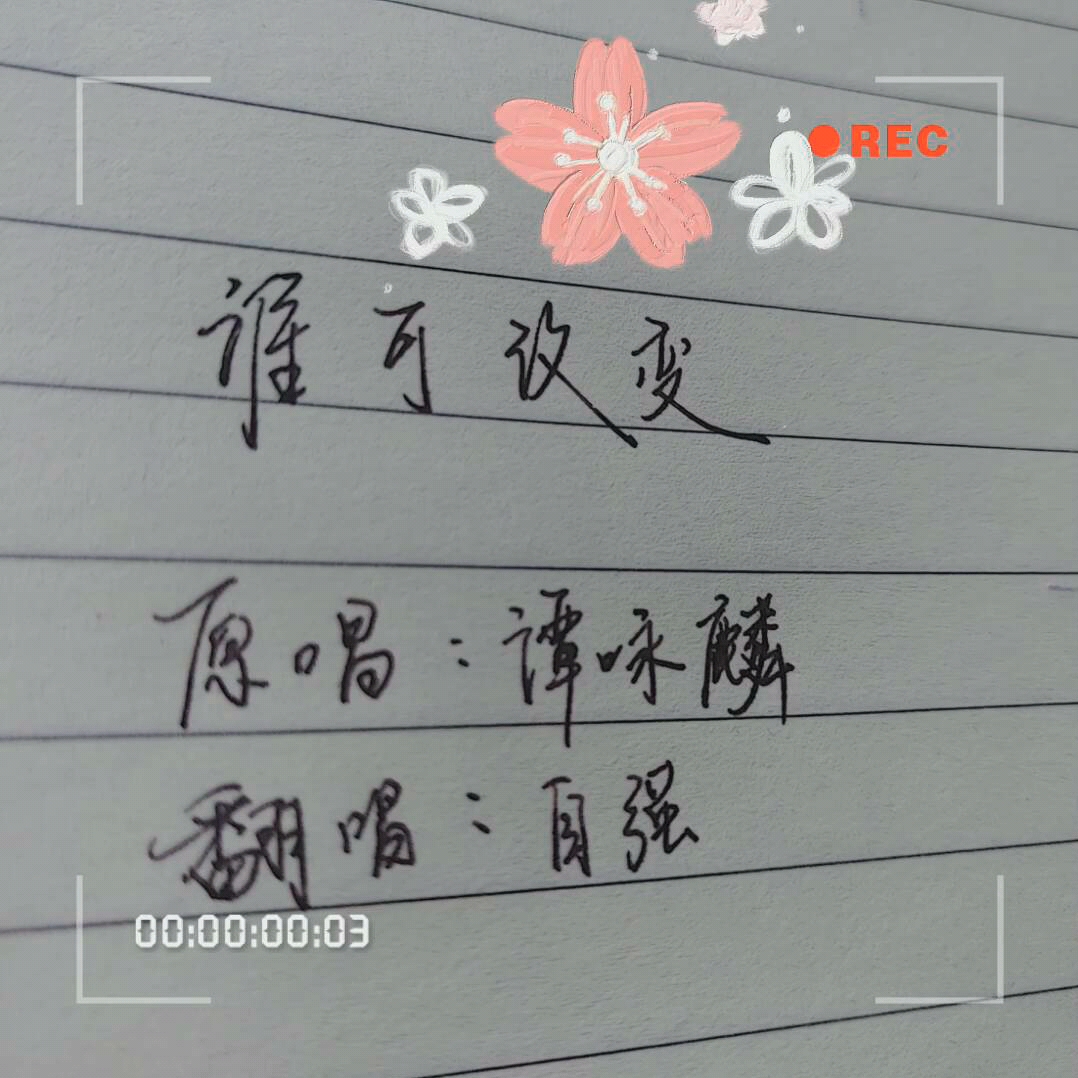 REC
谁可改变
原唱：谭咏麟
翻唱：自强
00:00:00:03